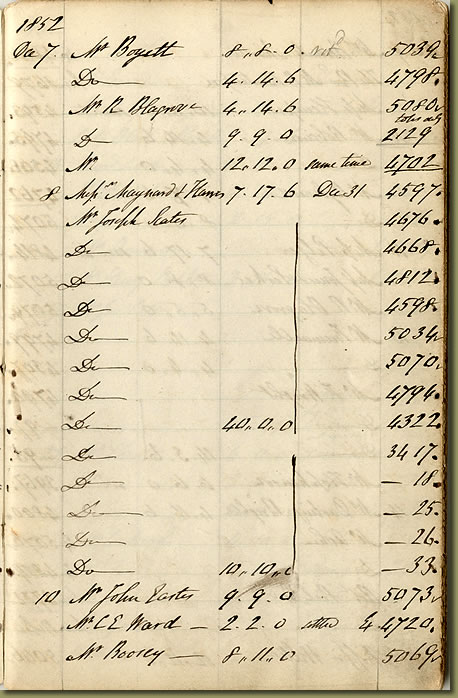 1852
Dec 7. Mr Boyett 8,,8.0 ref 5039
Do 4.14.6 4798.
Mr R Blagrove 4,.14.6 5080
D 9.9.0 2129
Mr. 12,.12.0 same time 4702
8 Messrs Maynard & Harris 7.17.6 Dec 31 4597.
Mr Joseph Scates 4676.
Do 4668.
Do 4812.
Do 4598.
Do 5034
Do 5070
Do 4794.
Do 40,.0,.0 4322.
Do 3417.
Do — 18.
Do — 25.
Do — 26.
Do 10,.10,.0 — 33.
10 Mr John Easter 9.9.0 5073
Mr C E Ward — 2.2.0 4720.
Mr Boosey — 8,.11.0 5069